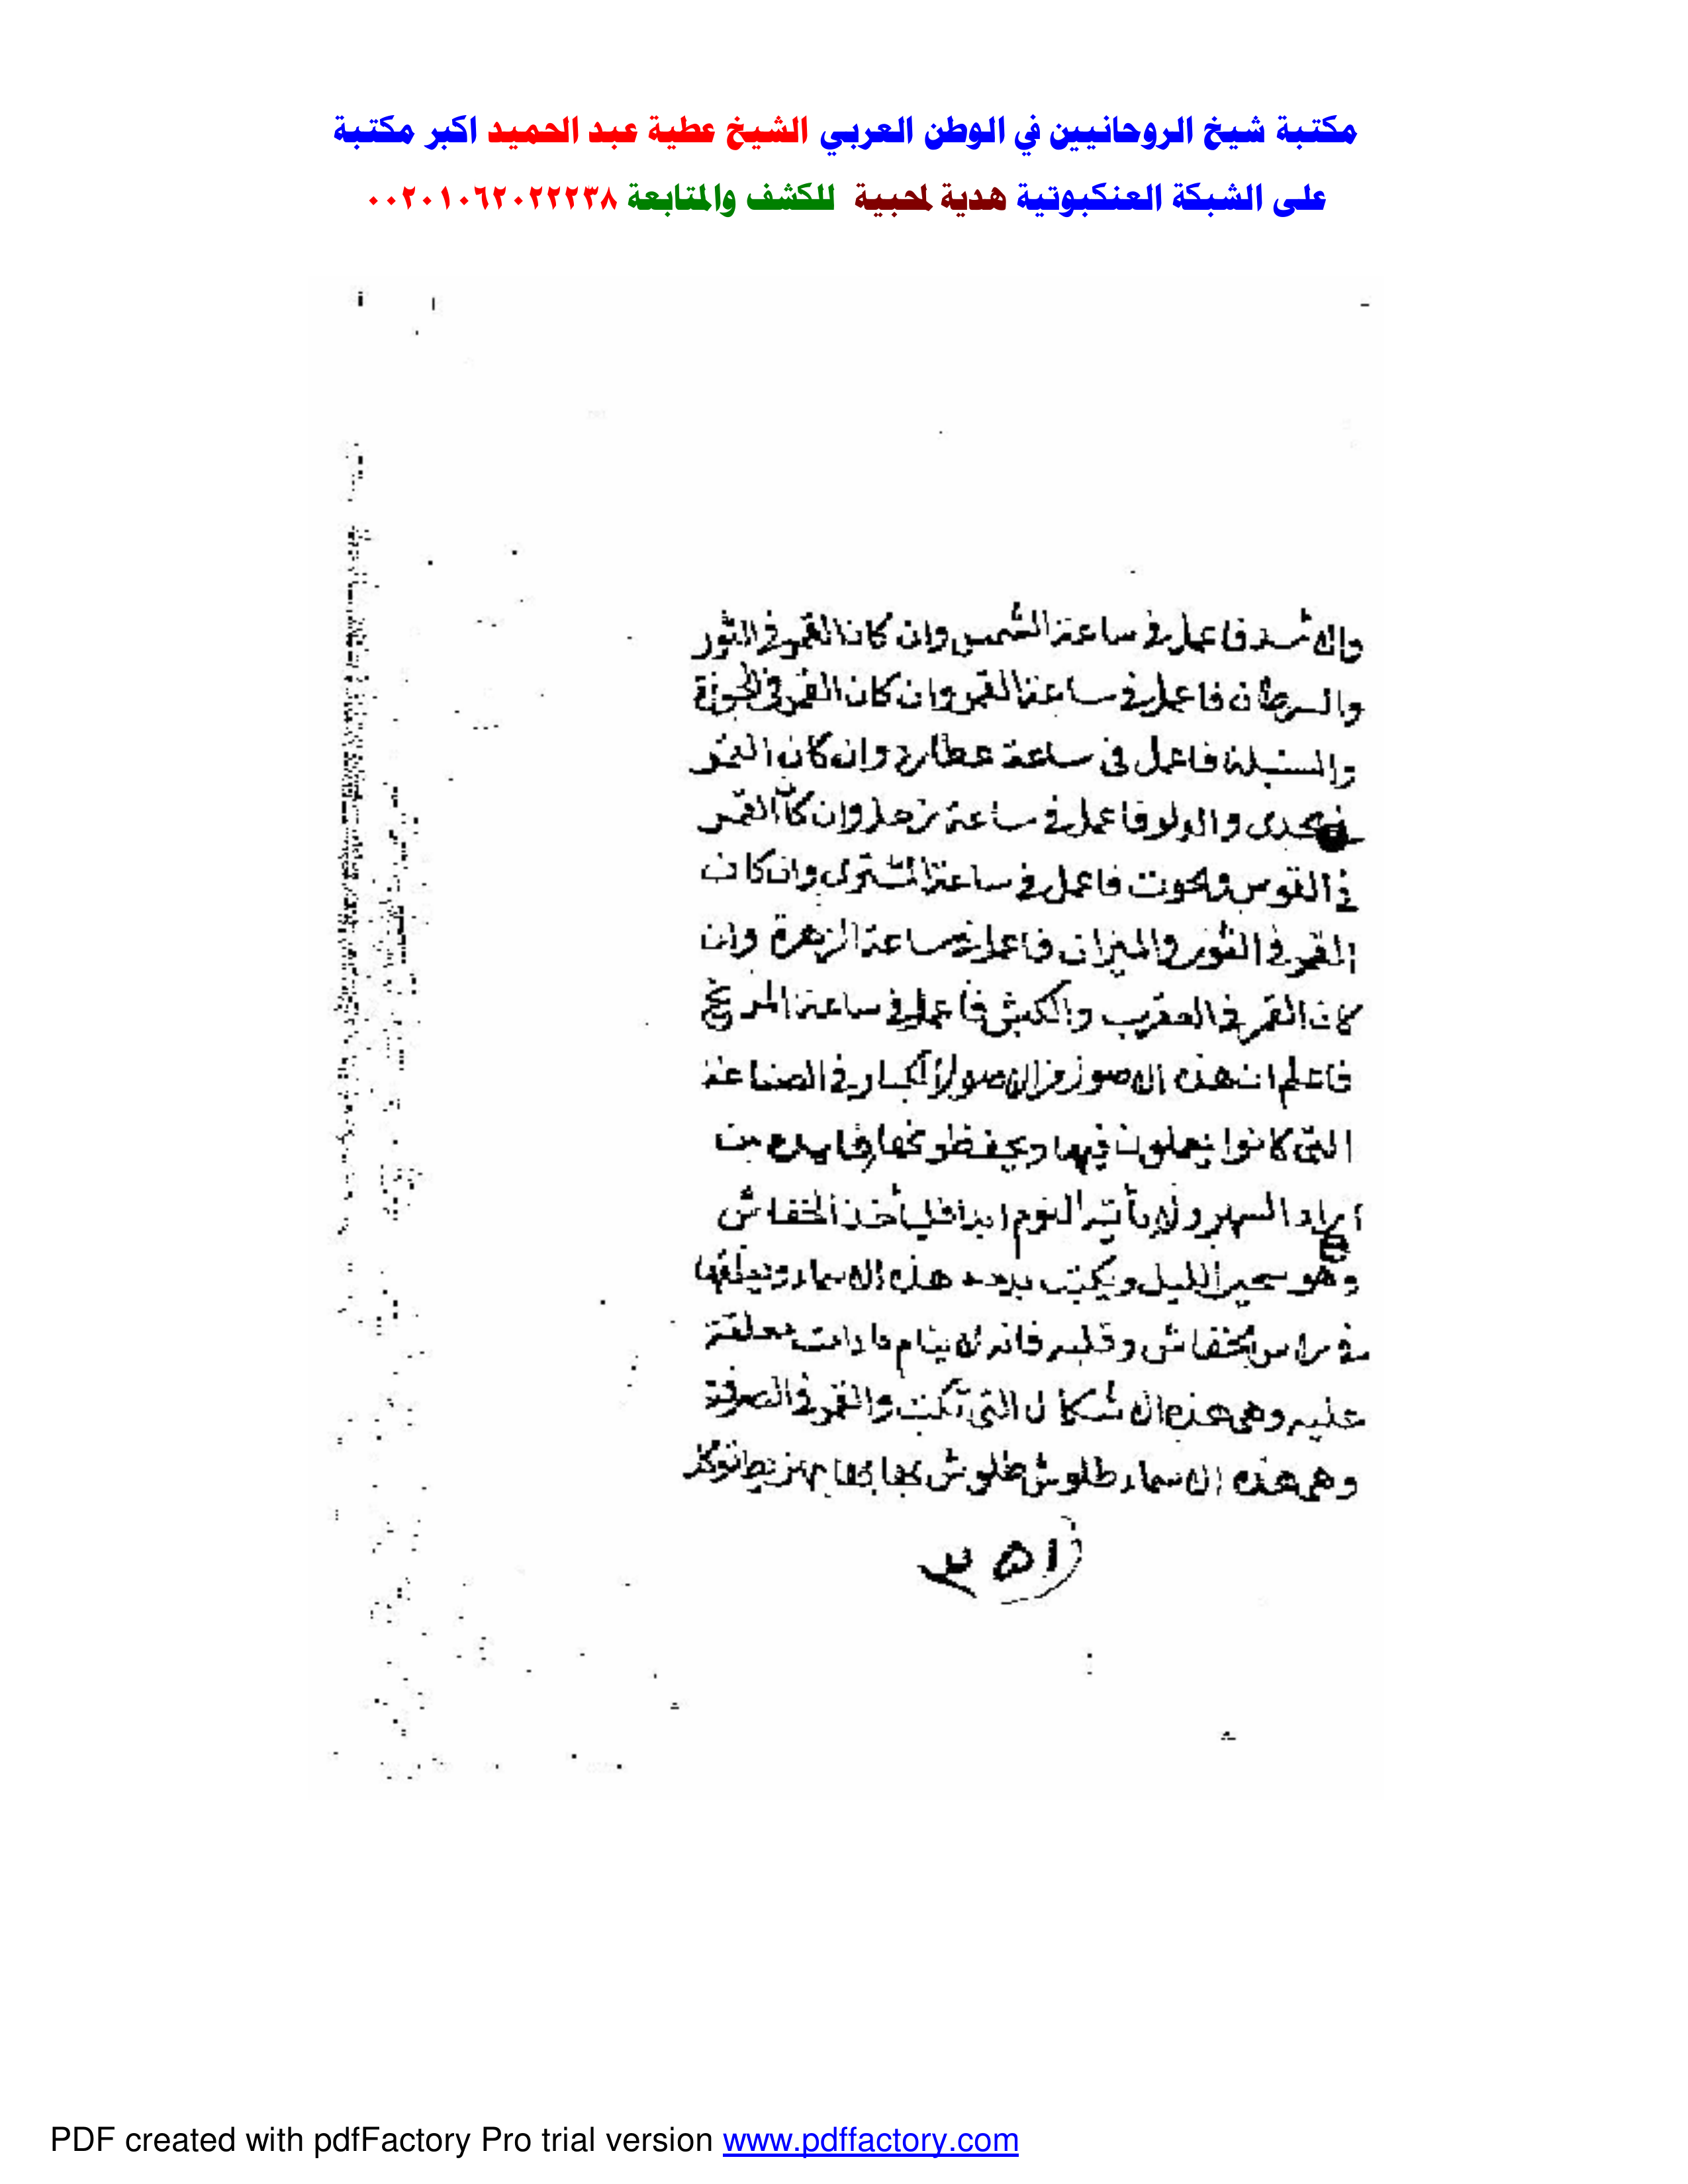 مكتبة شيخ الروحانيين في الوطن العربي الشيخ عطية عبد الحميد اكبر مكتبة
على الشبكة العنكبوتية هدية لمحبية للكشف والمتابعة ٠٠٢٠١٠٦٢٠٢٢٢٣٨
والاسد فاعمل في ساعة الشمس وان كان القمر في الثور
والسرطان فاعمل في ساعة القمر وان كان القمر في الجوزة
والسنبلة فاعمل في ساعة عطارد وان كان القمر
في الجدى والدلو فاعمل في ساعة زحل وان كان القمر
في القوس والحوت فاعمل في ساعة المشترى وان كان
القمر في الثور والميزان فاعمل في ساعة الزهرة وان
كان القمر في العقرب والكبش فاعمل في ساعة المريخ
فاعلم ان هذه الاصول من الاصول الكبار في الصناعة
التي كانوا يعملون فيها ويحفظونها فايدة من
اراد السهر ولا يأتيه النوم ابدا فليأخذ الخفاش
وهو سحير الليل ويكتب بدمه هذه الاسماء ويعلقها
في راس الخفاش وقلبه فانه لا ينام ما دامت معلقة
عليه وهي هذه الاشكال التي تكتب والقمر في الصرفة
وهي هذه الاسماء طلوش طلوش